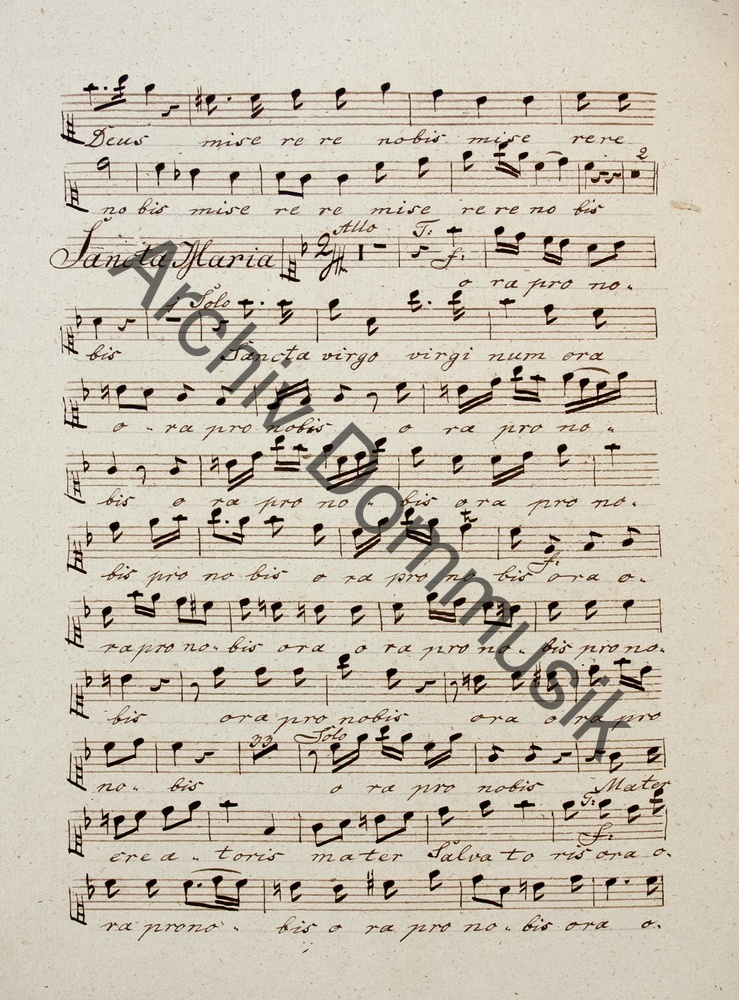 Deus mise re re nobis mise rere
2
no bis mise re re re mise re re re no bis
Allo T:
Sancta Maria 2 f:
o ra pro no-
Solo
bis Sancta virgo virgi num ora
o - ra pro nobis o ra pro no -
bis o ra pro no - bis ora pro no -
bis pro no bis o ra pro no bis ora o -
f:
ra pro no - bis ora o ra pro no - bis pro no -
bis ora pro nobis ora o ra pro
33 Solo
no - bis o ra pro nobis Mater
T:
f:
crea - toris mater Salvato ris ora o -
ra prono - bis o ra pro no - bis ora o -
Archiv Dommusik